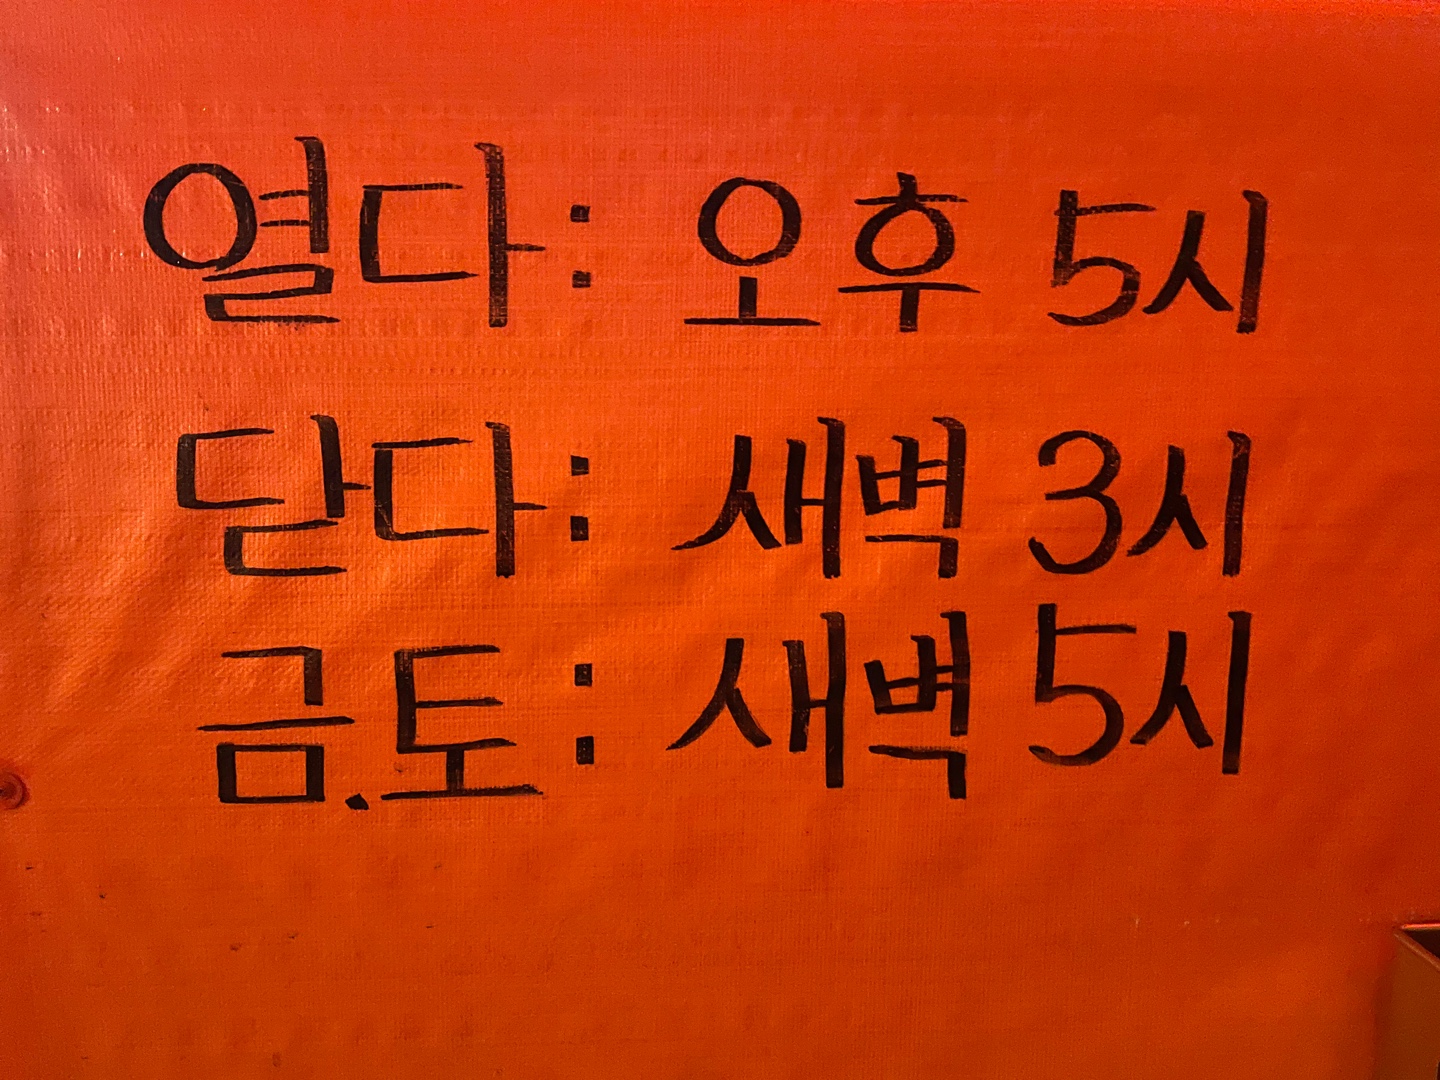 열다: 오후 5시
닫다: 새벽 3시
금.토: 새벽 5시